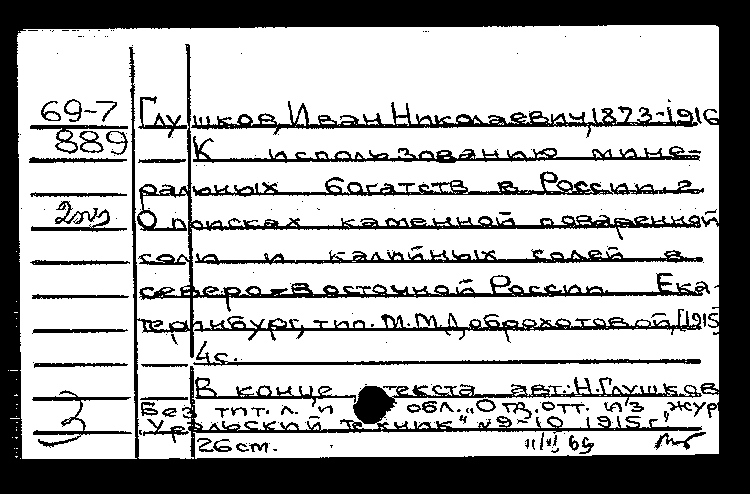 69-7 Глушков, Иван Николаевич, 1873-1916
889 К использованию мине-
ральных богатств в России. 2.
2 экз О поисках каменной поваренной
соли и калийных солей в
северо-восточной России. Ека-
теринбург, тип. М.М. Доброхотовой, [1915]
4 с.
В конце текста авт.: Н. Глушков
3 Без тит. л. и обл. "Отд. отт. из журн.
"Уральский техник" № 9-10 1915 г."
26 см.